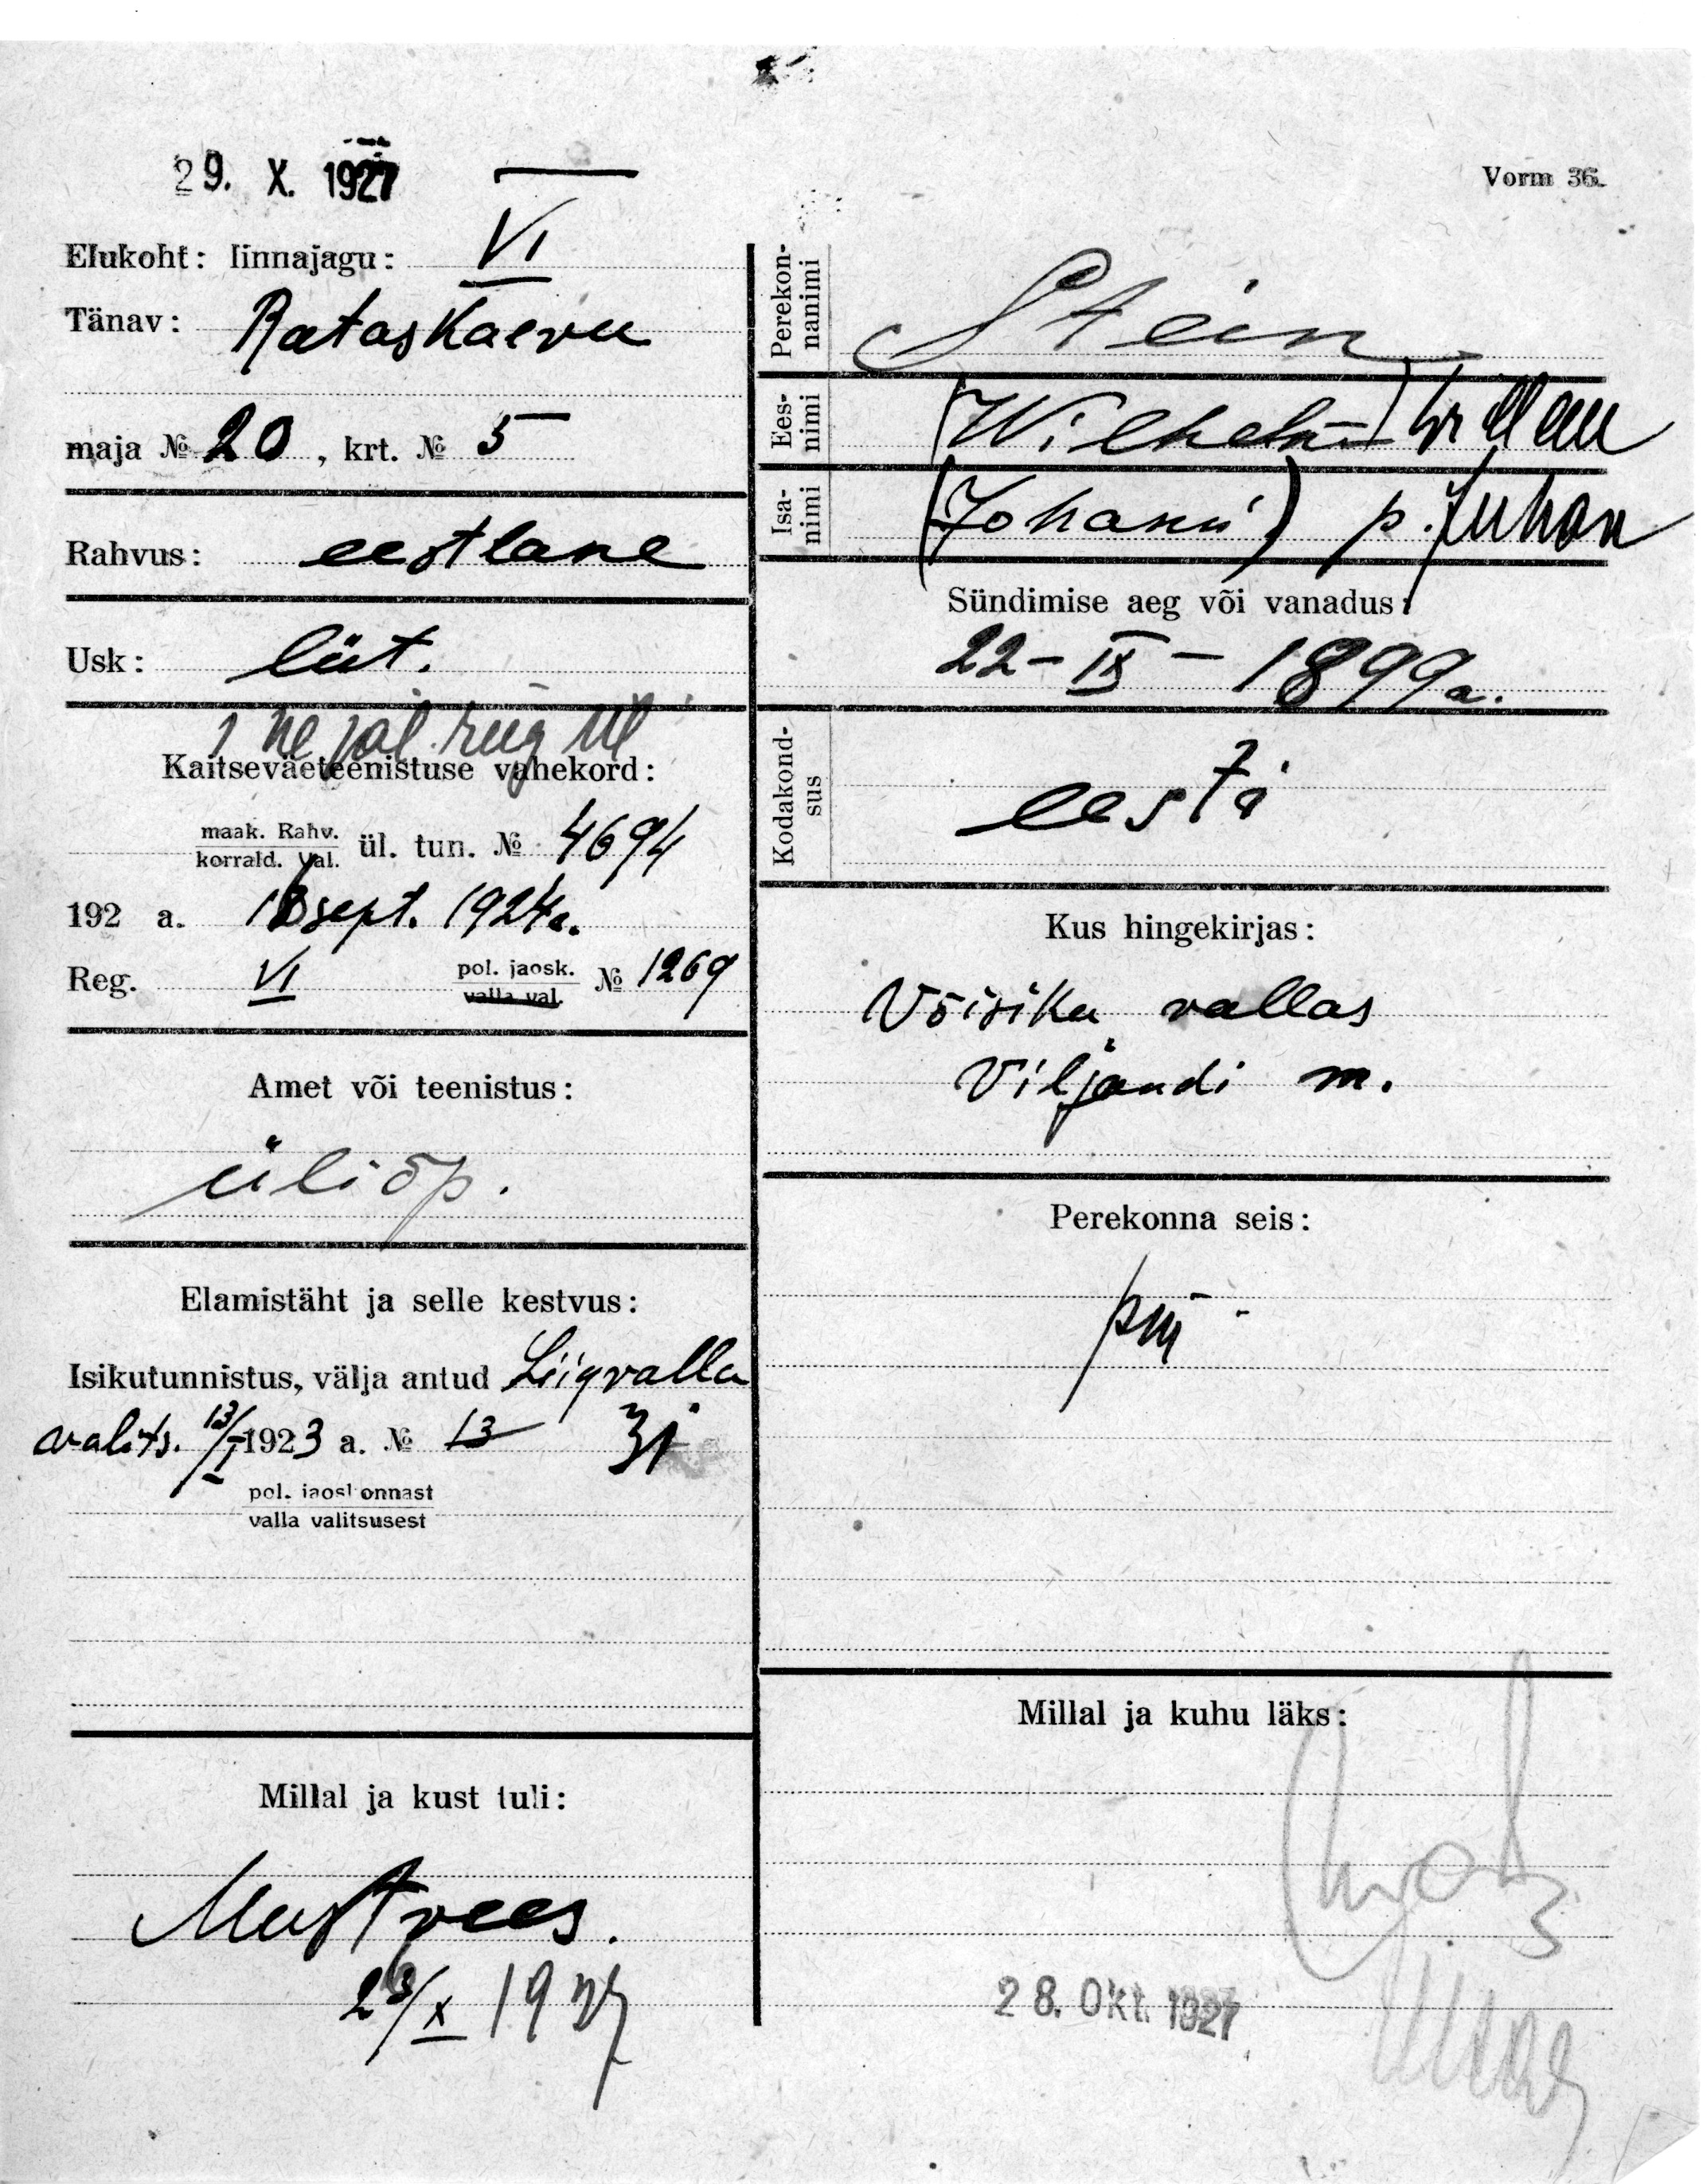 29. X. 1927
Vorm 36.
Elukoht: linnajagu: VI
Tänav: Rataskaevu
maja № 20, krt. № 5
Rahvus: eestlane
Usk: lüt.
Kaitseväeteenistuse vahekord:
maak. Rahv.
korrald. Val. ül. tun. № 4694
192 a. 18 sept. 1924 a.
Reg. VI pol. jaosk.
valla val. № 1269
Amet või teenistus:
üliõp.
Elamistäht ja selle kestvus:
Isikutunnistus, välja antud Liigvalla
valits. 13/I 1923 a. № 13 31
pol. jaoskonnast
valla valitsusest
Millal ja kust tuli:
Mustvees.
/X 1927
Perekon-
nanimi Stein
Ees-
nimi (Wilhelm) Willem
Isa-
nimi (Johann) p. Juhan
Sündimise aeg või vanadus:
22-IX-1899 a.
Kodakond-
sus eesti
Kus hingekirjas:
Võisiku vallas
Viljandi m.
Perekonna seis:
Millal ja kuhu läks:
28. Okt. 1927